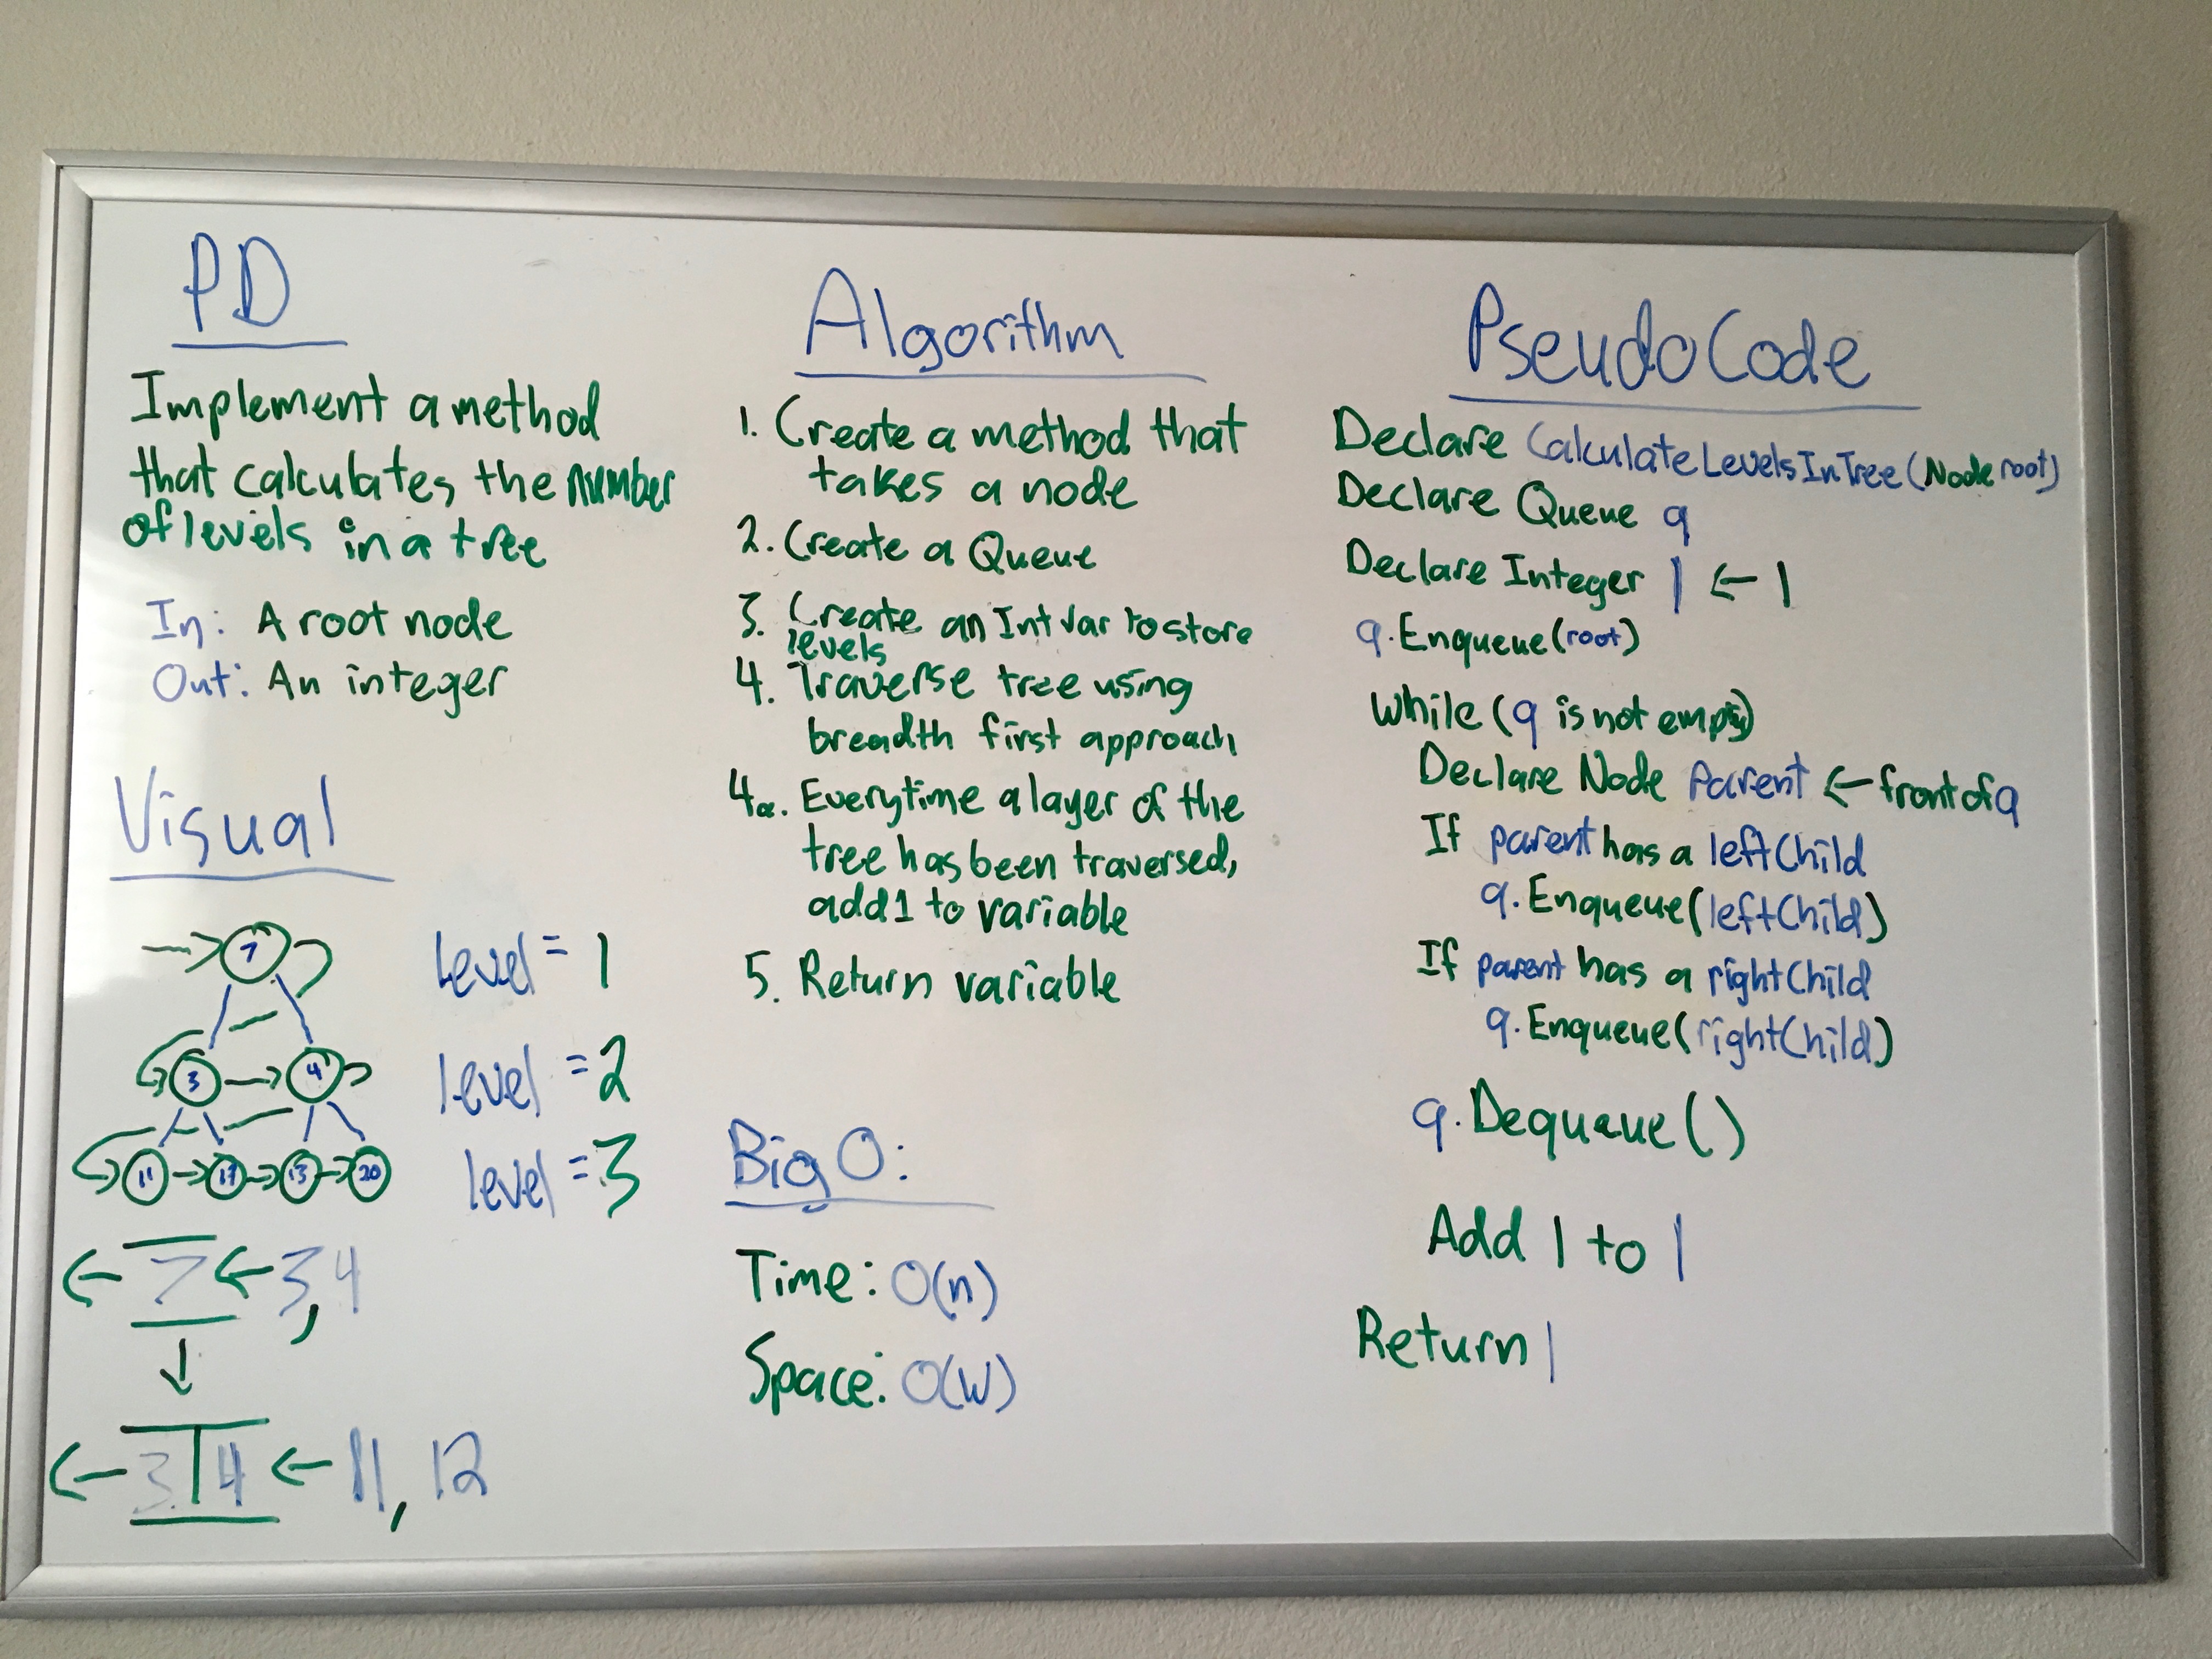 PD
Implement a method
that calculates the number
of levels in a tree
In: A root node
Out: An integer
Visual
7
level = 1
3 4
level = 2
11 13 20
level = 3
7 3, 4
3 4 11, 12
Algorithm
1. Create a method that
takes a node
2. Create a Queue
3. Create an Int Var to store
levels
4. Traverse tree using
breadth first approach
4a. Everytime a layer of the
tree has been traversed,
add 1 to variable
5. Return variable
Big O:
Time: O(n)
Space: O(W)
PseudoCode
Declare CalculateLevelsInTree (Node root)
Declare Queue q
Declare Integer l ← 1
q.Enqueue(root)
While (q is not empty)
Declare Node Parent ← front of q
If parent has a leftChild
q.Enqueue(leftChild)
If parent has a rightChild
q.Enqueue(rightChild)
q.Dequeue()
Add 1 to l
Return l